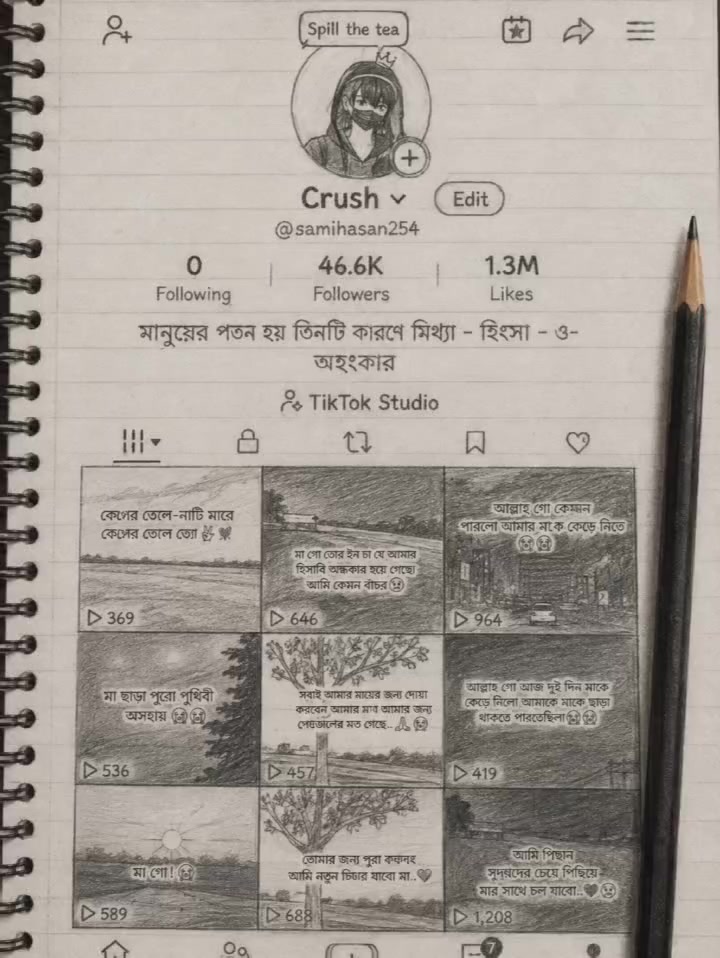 Spill the tea
Crush
Edit
@samihasan254
0
Following
46.6K
Followers
1.3M
Likes
মানুয়ের পতন হয় তিনটি কারণে মিথ্যা - হিংসা - ও-
অহংকার
TikTok Studio
তেলে-নাটি মারে
তেলে
369
মা গো তোর ইন চা যে আমার
হিসাবি অন্ধকার হয়ে গেছে
আমি কেমন
646
আল্লাহ গো কেমন
পারলো আমার মাকে কেড়ে নিতে
964
মা ছাড়া পুরো পৃথিবী
অসহায়
536
সবাই আমার মায়ের জন্য দোয়া
করবেন আমার আমার জন্য
মত গেছে..
457
আল্লাহ গো আজ দুই দিন মাকে
কেড়ে নিলো আমাকে মাকে ছাড়া
থাকতে
419
মা গো!
589
তোমার জন্য পুরা
আমি নতুন যাবো মা..
688
আমি পিছান
চেয়ে পিছিয়ে
মার সাথে চল যাবো..
1,208
7